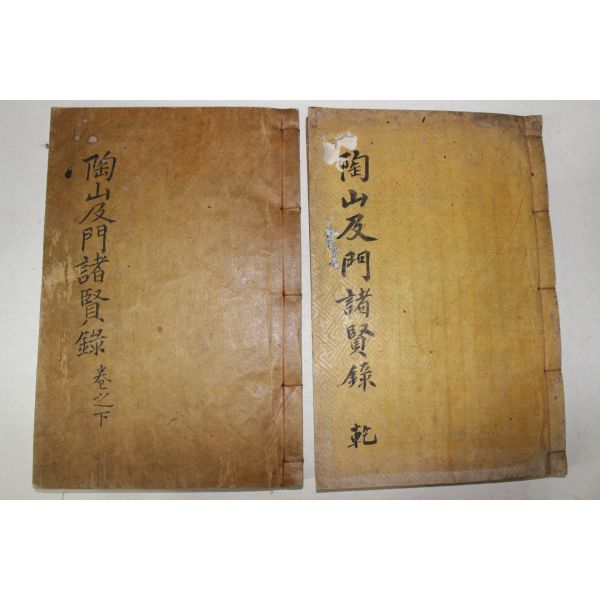 陶山及門諸賢錄 乾
陶山及門諸賢錄 卷之下